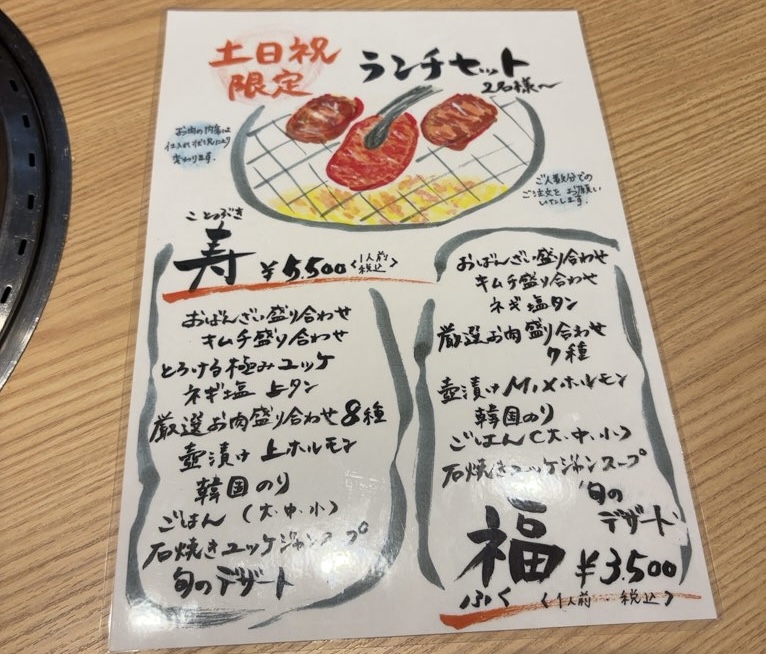 土日祝
限定
ランチセット
2名様〜
お肉の内容は
仕入れ状況により
変わります。
ご人数分での
ご注文をお願い
いたします。
ことぶき
寿 ¥5,500 <1人前 税込>
おばんざい盛り合わせ
キムチ盛り合わせ
とろける極みユッケ
ネギ塩 上タン
厳選お肉盛り合わせ 8種
壺漬け 上ホルモン
韓国のり
ごはん (大・中・小)
石焼きユッケジャンスープ
旬のデザート
おばんざい盛り合わせ
キムチ盛り合わせ
ネギ塩タン
厳選お肉盛り合わせ
7種
壺漬けMIXホルモン
韓国のり
ごはん(大・中・小)
石焼きユッケジャンスープ
旬の
デザート
福 ¥3,500
ふく <1人前 税込>